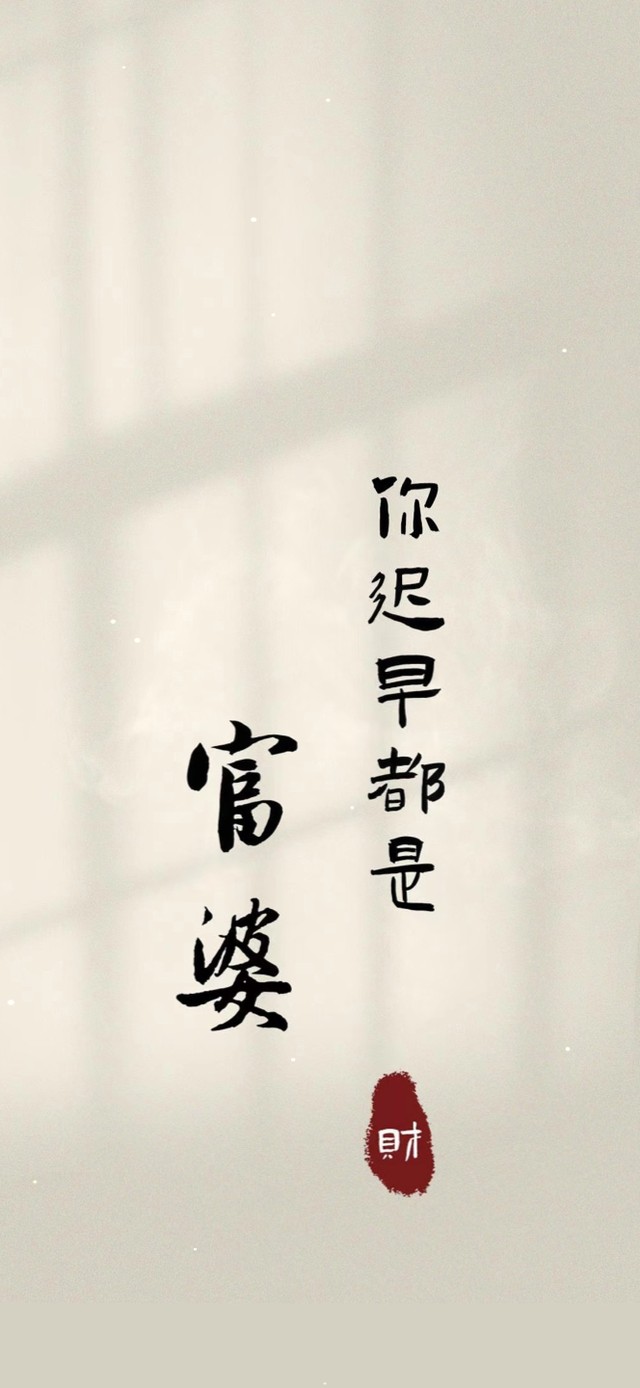 你迟早都是
富婆
財